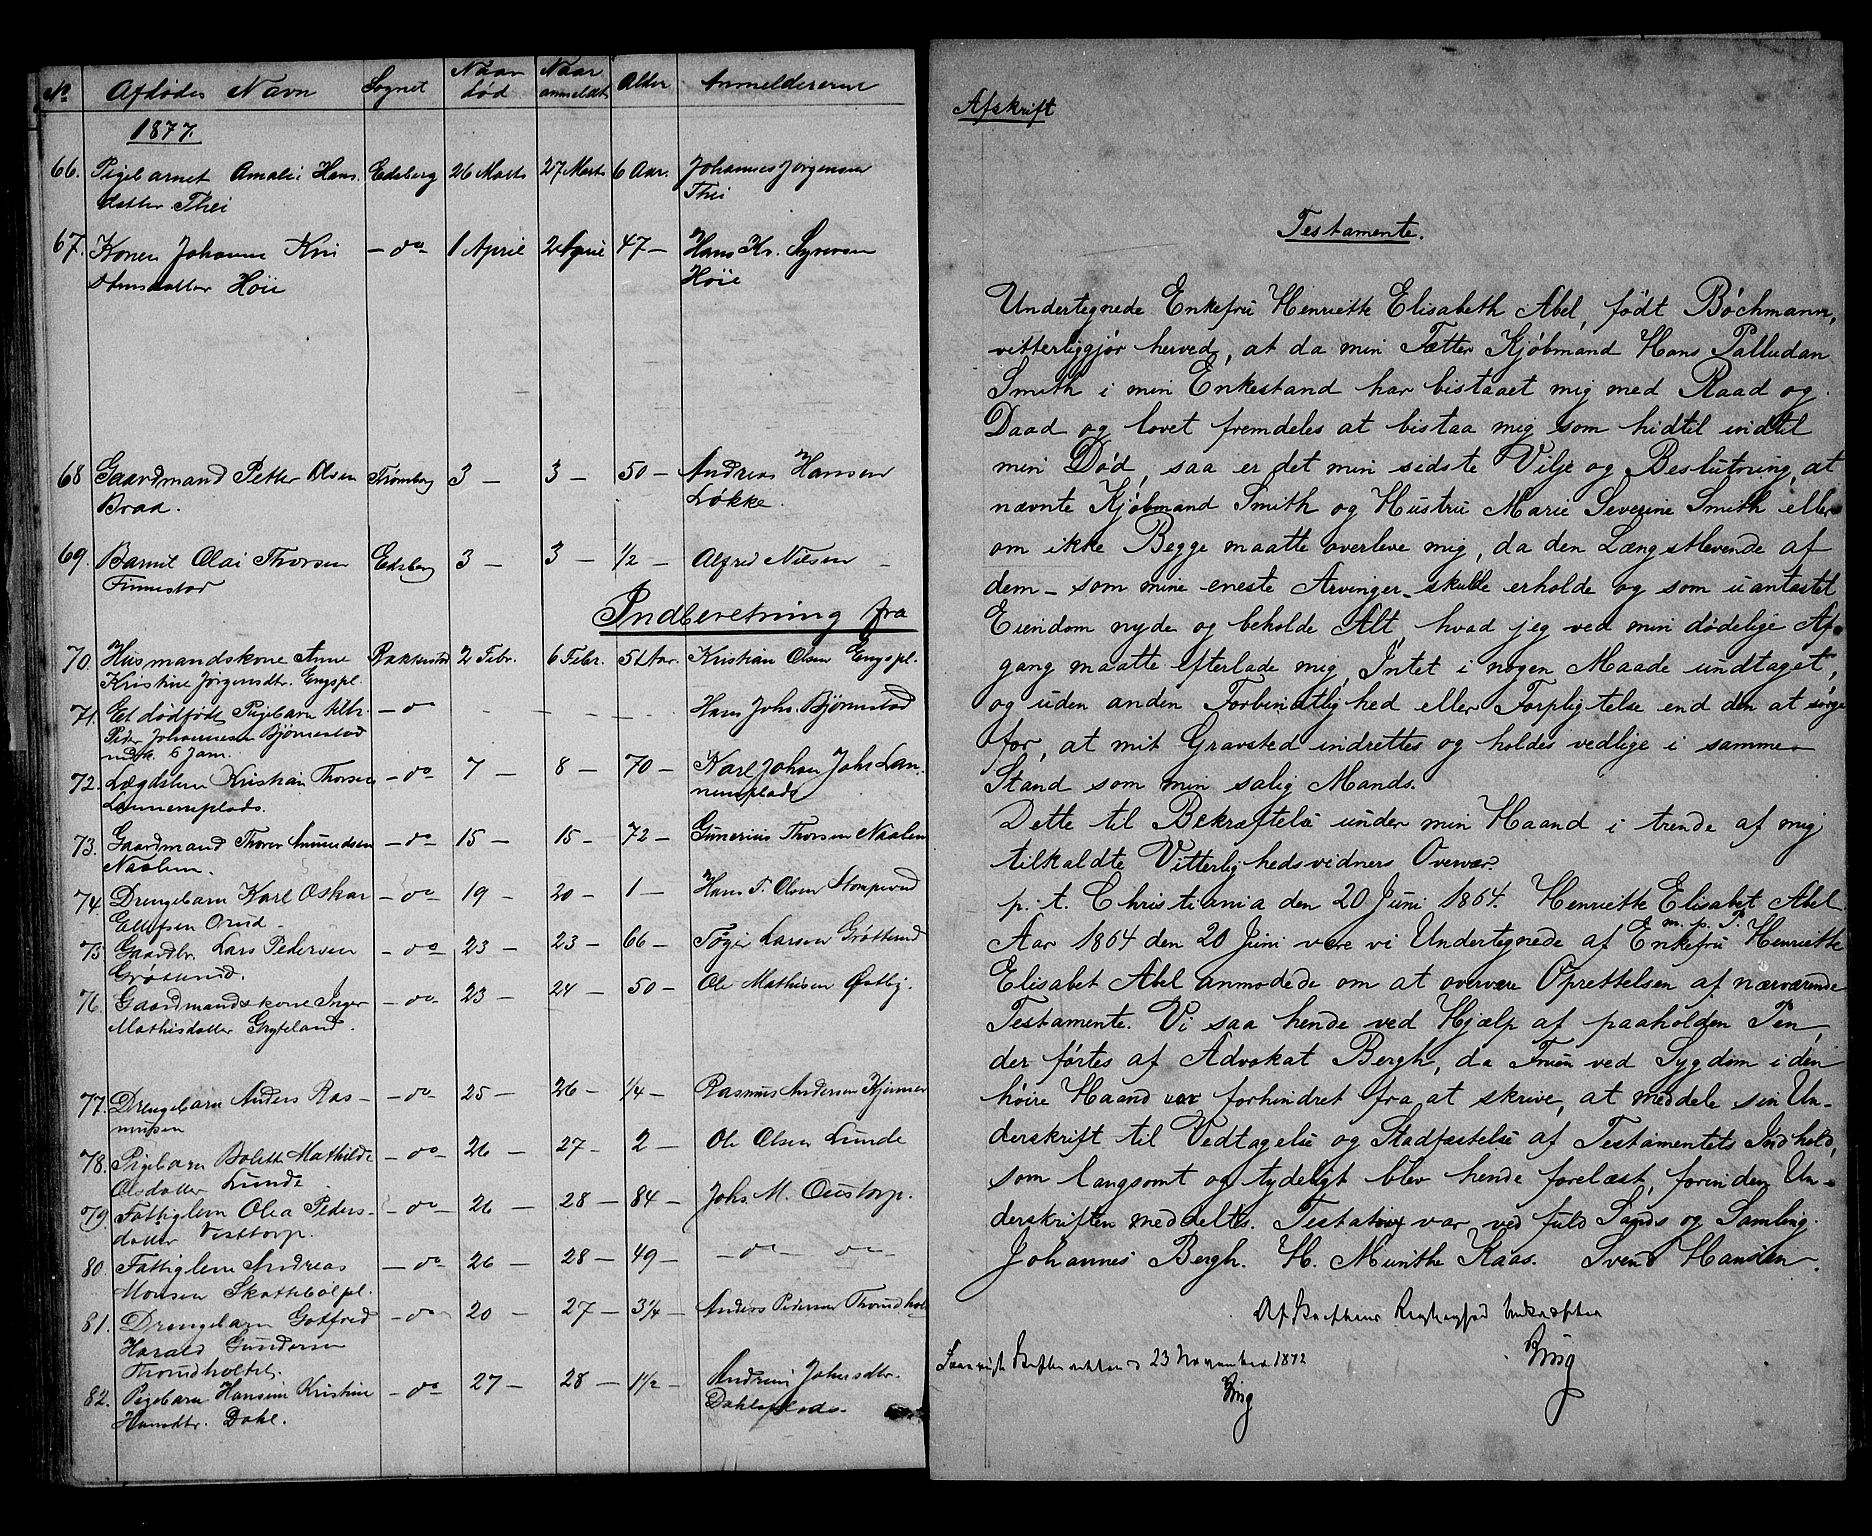 No Afdødes Navn Sognet Naar død Naar anmeldt Alder Anmelderens
1877.
66. Pigebarnet Amalie Hans- Edsberg 26 Marts 27 Marts 6 Aar. Johannes Jørgensen
datter Thei Thei
67. Konen Johanne Kri -do- 1 April 2 April 47- Hans Kr. Syversen
stensdatter Høie Høie
68 Gaardmand Petter Olsen Trømborg 3 - 3 - 50- Andreas Hansen
Braa. Løkke.
69. Barnet Olai Thorsen Edsberg 3 - 3 - 1/2 - Alfred Nilsen -
Finnestad
Indberetning fra
70. Husmandskone Anne Rakkestad 2 Febr. 6 Febr. 51 Aar. Kristian Olsen Engspl.
Kristine Jørgensdtr. Engspl.
71. Et dødfødt Pigebarn -do- - - - Hans Johs. Bjørnestad
Peder Johannesen Bjørnestad
6 Jan.
72. Lægdslem Kristian Thorsen -do- 7 - 8 - 70 - Karl Johan Johs Lan-
Lannemplads. nemplads
73. Gaardmand Thorer Amundsen -do- 15 - 15 - 72 - Gunerius Thorsen Naalem
Naalem.
74. Drengebarn Karl Oskar -do- 19 - 20 - 1 - Hans T. Olsen
Ellefsen Orud
75 Gaardbr. Lars Pedersen -do- 23 - 23 - 66 - Larsen Grøtterud
Grøtterud.
76. Gaardmandskone Inger -do- 23 - 24 - 50 - Ole Mathisen Østby.
Mathisdatter Gryteland.
77. Drengebarn Anders Ras- -do- 25 - 26 - 1/4 - Rasmus Andersen
mussen
78. Pigebarn Bolette Mathilde -do- 26 - 27 - 2 - Ole Olsen Lunde
Olsdatter Lunde
79. Fattiglem Olea Peders- -do- 26 - 28 - 84 - Johs. M. Oustorp.
datter Visttorp.
80. Fattiglem Andreas -do- 26 - 28 - 49 - -do- -do-
Monsen Skattebølpl.
81. Drengebarn Gotfred -do- 20 - 27 - 3 1/4 - Anders Pedersen
Harald Gundersen
82. Pigebarn Hansine Kristine -do- 27 - 28 - 1 1/2 - Andrine Johnsdtr.
Hansdtr. Dahl. Dahlsplads.
Afskrift
Testamente.
Undertegnede Enkefru Henriette Elisabeth Abel, født Bøchmann,
vitterliggjør herved, at da min Fætter Kjøbmand Hans Palludan
Smith i min Enkestand har bistaaet mig med Raad og
Daad og lovet fremdeles at bistaa mig som hidtil indtil
min Død, saa er det min sidste Vilje og Beslutning, at
nævnte Kjøbmand Smith og Hustru Marie Severine Smith eller
om ikke Begge maatte overleve mig, da den Længstlevende af
dem - som mine eneste Arvinger - skulde erholde og som uantastet
Eiendom nyde og beholde Alt, hvad jeg ved min dødelige Af-
gang maatte efterlade mig, Intet i nogen Maade undtaget,
og uden anden Forbindtlighed eller Forpligtelse end den at sørge
for, at mit Gravsted indrettes og holdes vedlige i samme
Stand som min salig Mands.
Dette til Bekræftelse under min Haand i trende af mig
tilkaldte Vitterlighedsvidners Overvær.
p. t. Christiania den 20 Juni 1864. Henriette Elisabet Abel
m. p. P.
Aar 1864 den 20 Juni vare vi Undertegnede af Enkefru Henriette
Elisabet Abel anmodede om at overvære Oprettelsen af nærværende
Testamente. Vi saa hende ved Hjælp af paaholden Pen,
der førtes af Advokat Bergh, da Fruen ved Sygdom i den
høire Haand var forhindret fra at skrive, at meddele sin Un-
derskrift til Vedtagelse og Stadfæstelse af Testamentets Indhold,
som langsomt og tydeligt blev hende forelæst, forinden Un-
derskriften meddeltes. Testator var ved fuld Sands og Samling.
Johannes Bergh. H. Munthe Kaas. Svend Hansen.
Afskriftens Rigtighed bekræftes
23 November 1872
Bing
Bing